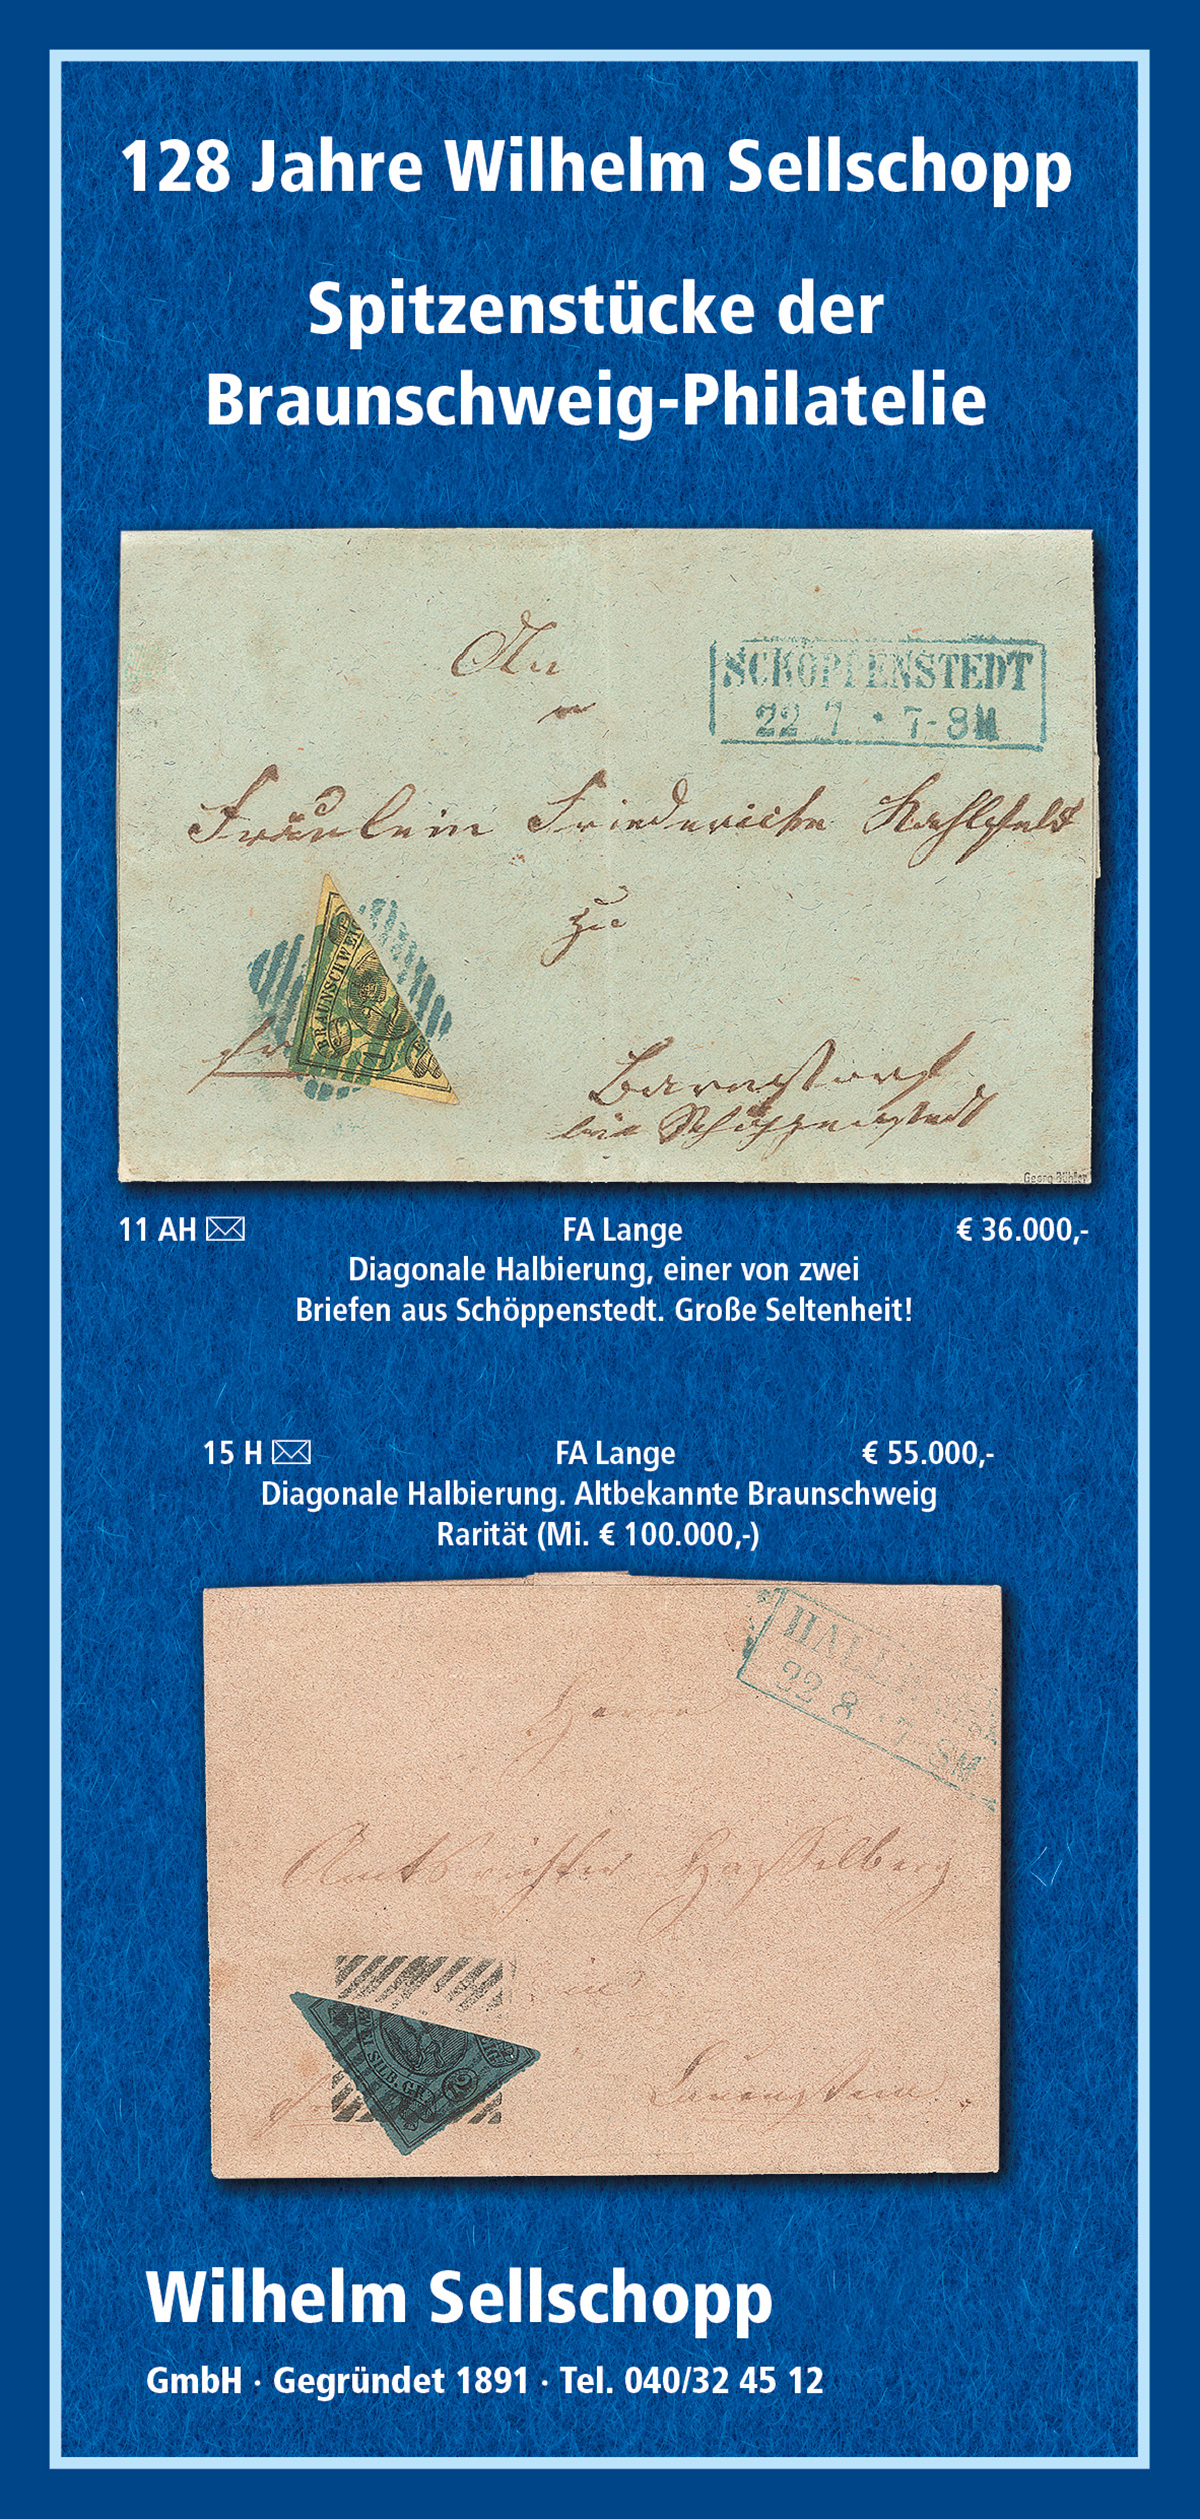 128 Jahre Wilhelm Sellschopp
Spitzenstücke der
Braunschweig-Philatelie
An
SCHÖPPENSTEDT
22 7 · 7-8M
Fräulein Friederike
zu
BRAUNSCHWEI
fr
bei Schöppenstedt
Georg Bühler
11 AH FA Lange € 36.000,-
Diagonale Halbierung, einer von zwei
Briefen aus Schöppenstedt. Große Seltenheit!
15 H FA Lange € 55.000,-
Diagonale Halbierung. Altbekannte Braunschweig
Rarität (Mi. € 100.000,-)
22 8
Herrn
Amtsrichter Hasselberg
in
SILB.GR.
Lauenstein
Wilhelm Sellschopp
GmbH · Gegründet 1891 · Tel. 040/32 45 12